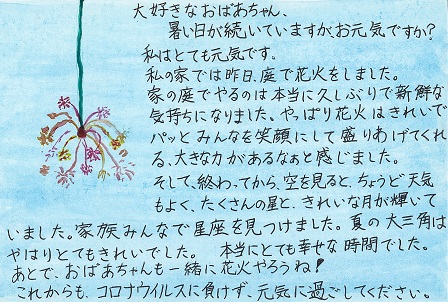 大好きなおばあちゃん、
暑い日が続いていますが、お元気ですか?
私はとても元気です。
私の家では昨日、庭で花火をしました。
家の庭でやるのは本当に久しぶりで新鮮な
気持ちになりました。やっぱり花火はきれいで
パッとみんなを笑顔にして盛りあげてくれ
る、大きな力があるなぁと感じました。
そして、終わってから、空を見ると、ちょうど天気
もよく、たくさんの星と、きれいな月が輝いて
いました。家族みんなで星座を見つけました。夏の大三角は
やはりとてもきれいでした。本当にとても幸せな時間でした。
あとで、おばあちゃんも一緒に花火やろうね!
これからも、コロナウイルスに負けず、元気に過ごしてください。